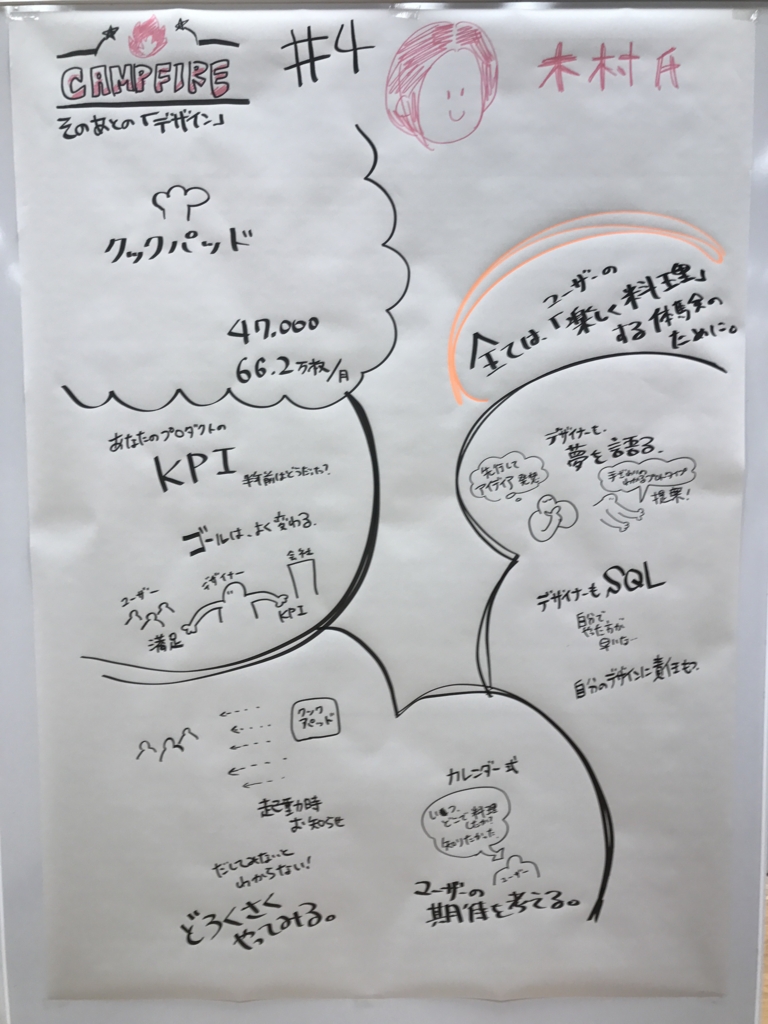 CAMPFIRE
そのあとの「デザイン」
#4
木村氏
クックパッド
47.000
66.2万枚/月
ユーザーの
全ては、「楽しく料理」
する体験の
ために。
あなたのプロダクトの
KPI
半年前はどうだった?
ゴールは、よく変わる。
ユーザー
デザイナー
会社
満足
KPI
デザイナーも、
夢を語る。
先行して
アイデア発想
プロトタイプ
提案!
デザイナーもSQL
自分で
やった方が
早いな…
自分のデザインに責任もつ。
クック
パッド
起動時
お知らせ
だしてみないと
わからない!
どろくさく
やってみる。
カレンダー式
いつ、
どこで料理
したか?
知りたかった
ユーザー
ユーザーの
期待を考える。